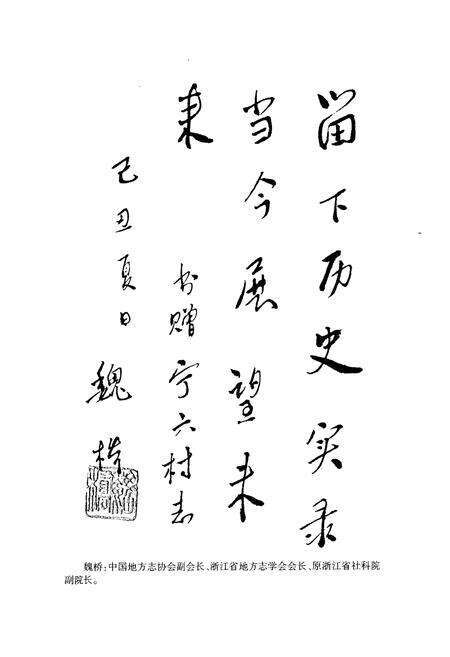 留下历史实录
当今展望未
来
书赠宁六村志
己丑夏日
魏桥
魏桥：中国地方志协会副会长、浙江省地方志学会会长、原浙江省社科院
副院长。